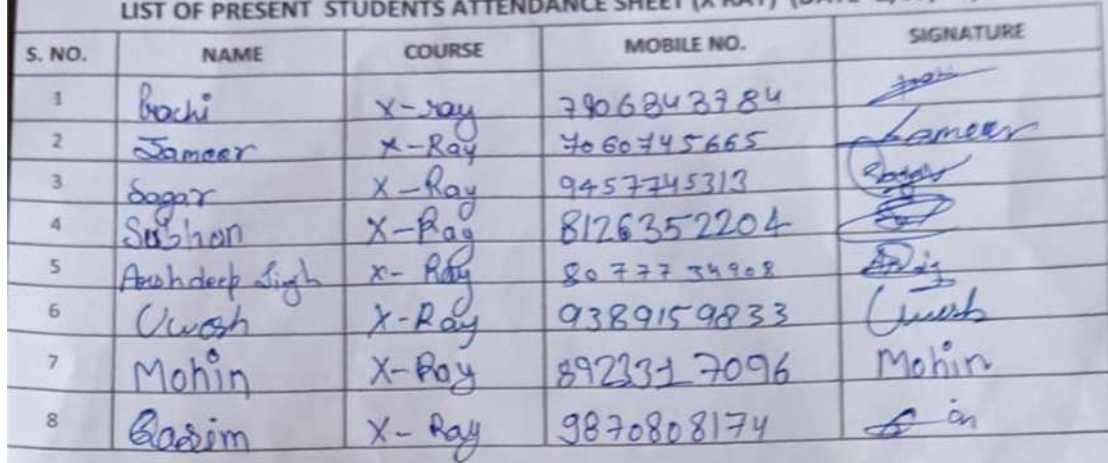 LIST OF PRESENT STUDENTS ATTENDANCE SHEET (X RAY) (DATE
S. NO. NAME COURSE MOBILE NO. SIGNATURE
1 Prachi X-ray 7906843784
2 Sameer X-Ray 7060745665 Sameer
3 Sagar X-Ray 9457745313 Sagar
4 Subhan X-Ray 8126352204
5 Arshdeep Singh X-Ray 8077734908
6 Uwesh X-Ray 9389159833 Uwesh
7 Mohin X-Ray 8923317096 Mohin
8 Qasim X-Ray 9870808174